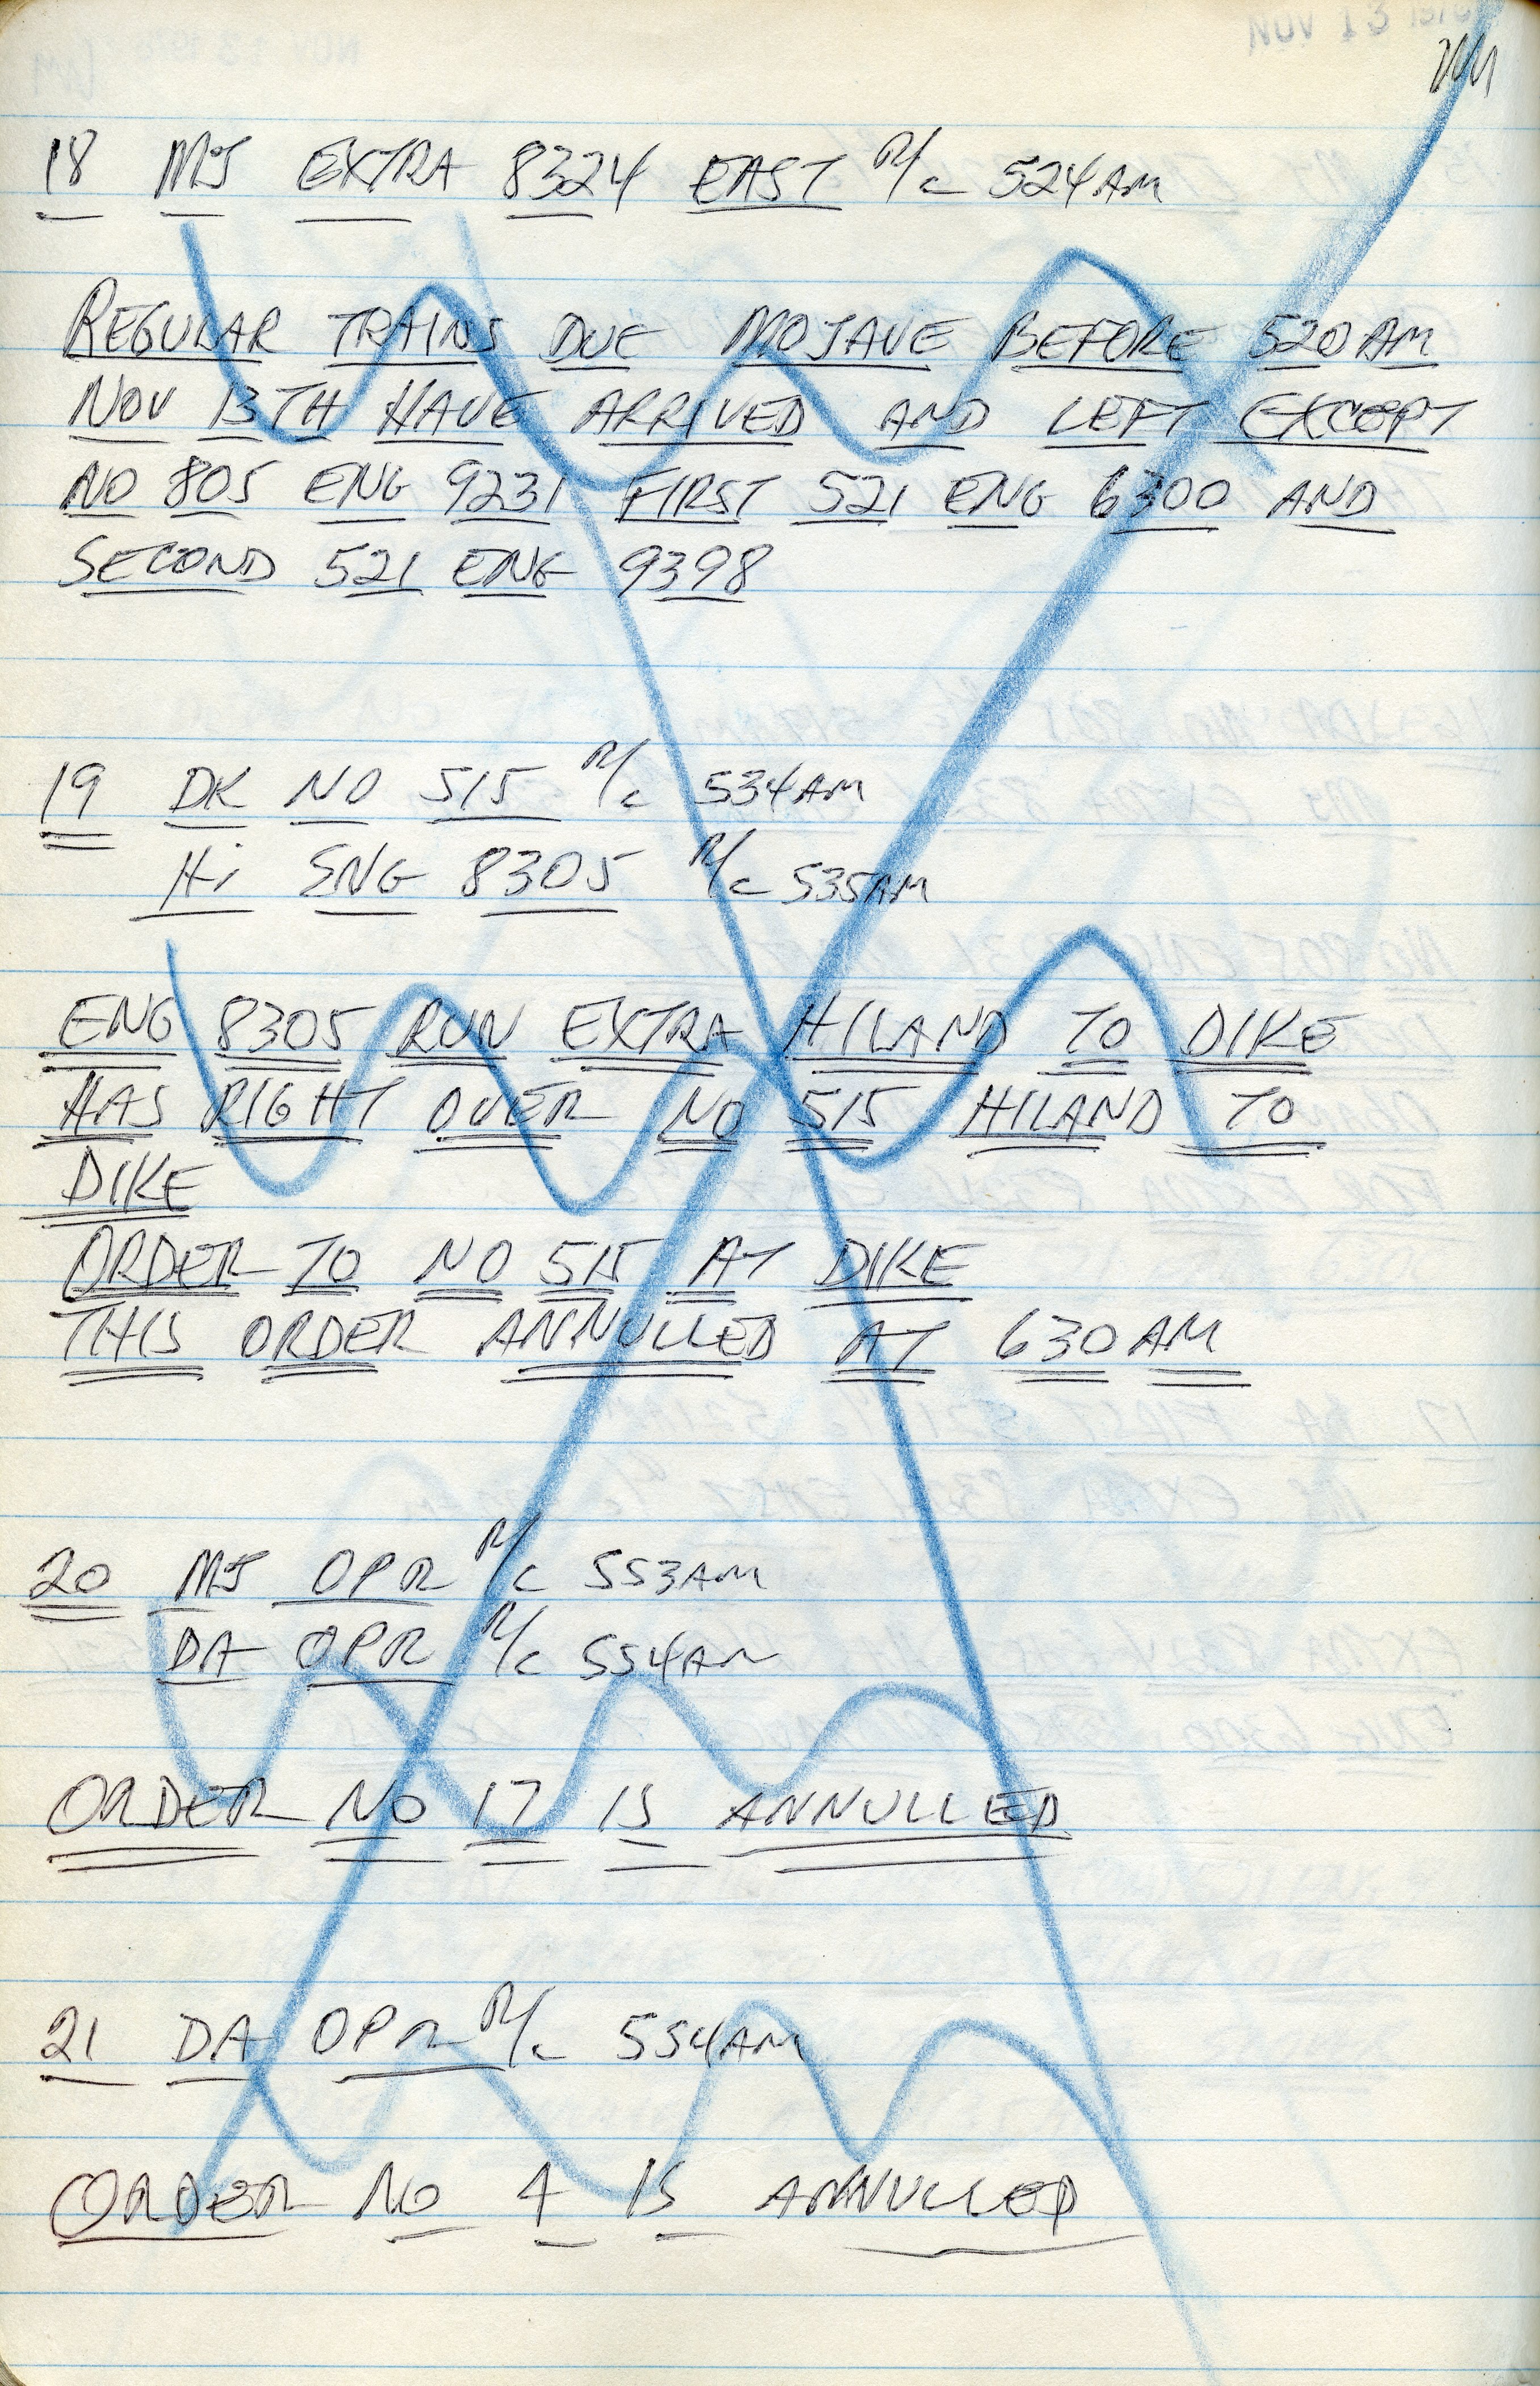 NOV 13
18 MJ EXTRA 8324 EAST R/c 524AM
REGULAR TRAINS DUE MOJAVE BEFORE 520AM
NOV 13TH HAVE ARRIVED AND LEFT EXCEPT
NO 805 ENG 9231 FIRST 521 ENG 6300 AND
SECOND 521 ENG 9398
19 DK NO 515 R/c 534AM
Hi ENG 8305 R/c 535AM
ENG 8305 RUN EXTRA HILAND TO DIKE
HAS RIGHT OVER NO 515 HILAND TO
DIKE
ORDER TO NO 515 AT DIKE
THIS ORDER ANNULLED AT 630AM
20 MJ OPR R/c 553AM
DA OPR R/c 554AM
ORDER NO 17 IS ANNULLED
21 DA OPR R/c 554AM
ORDER No 4 IS ANNULLED